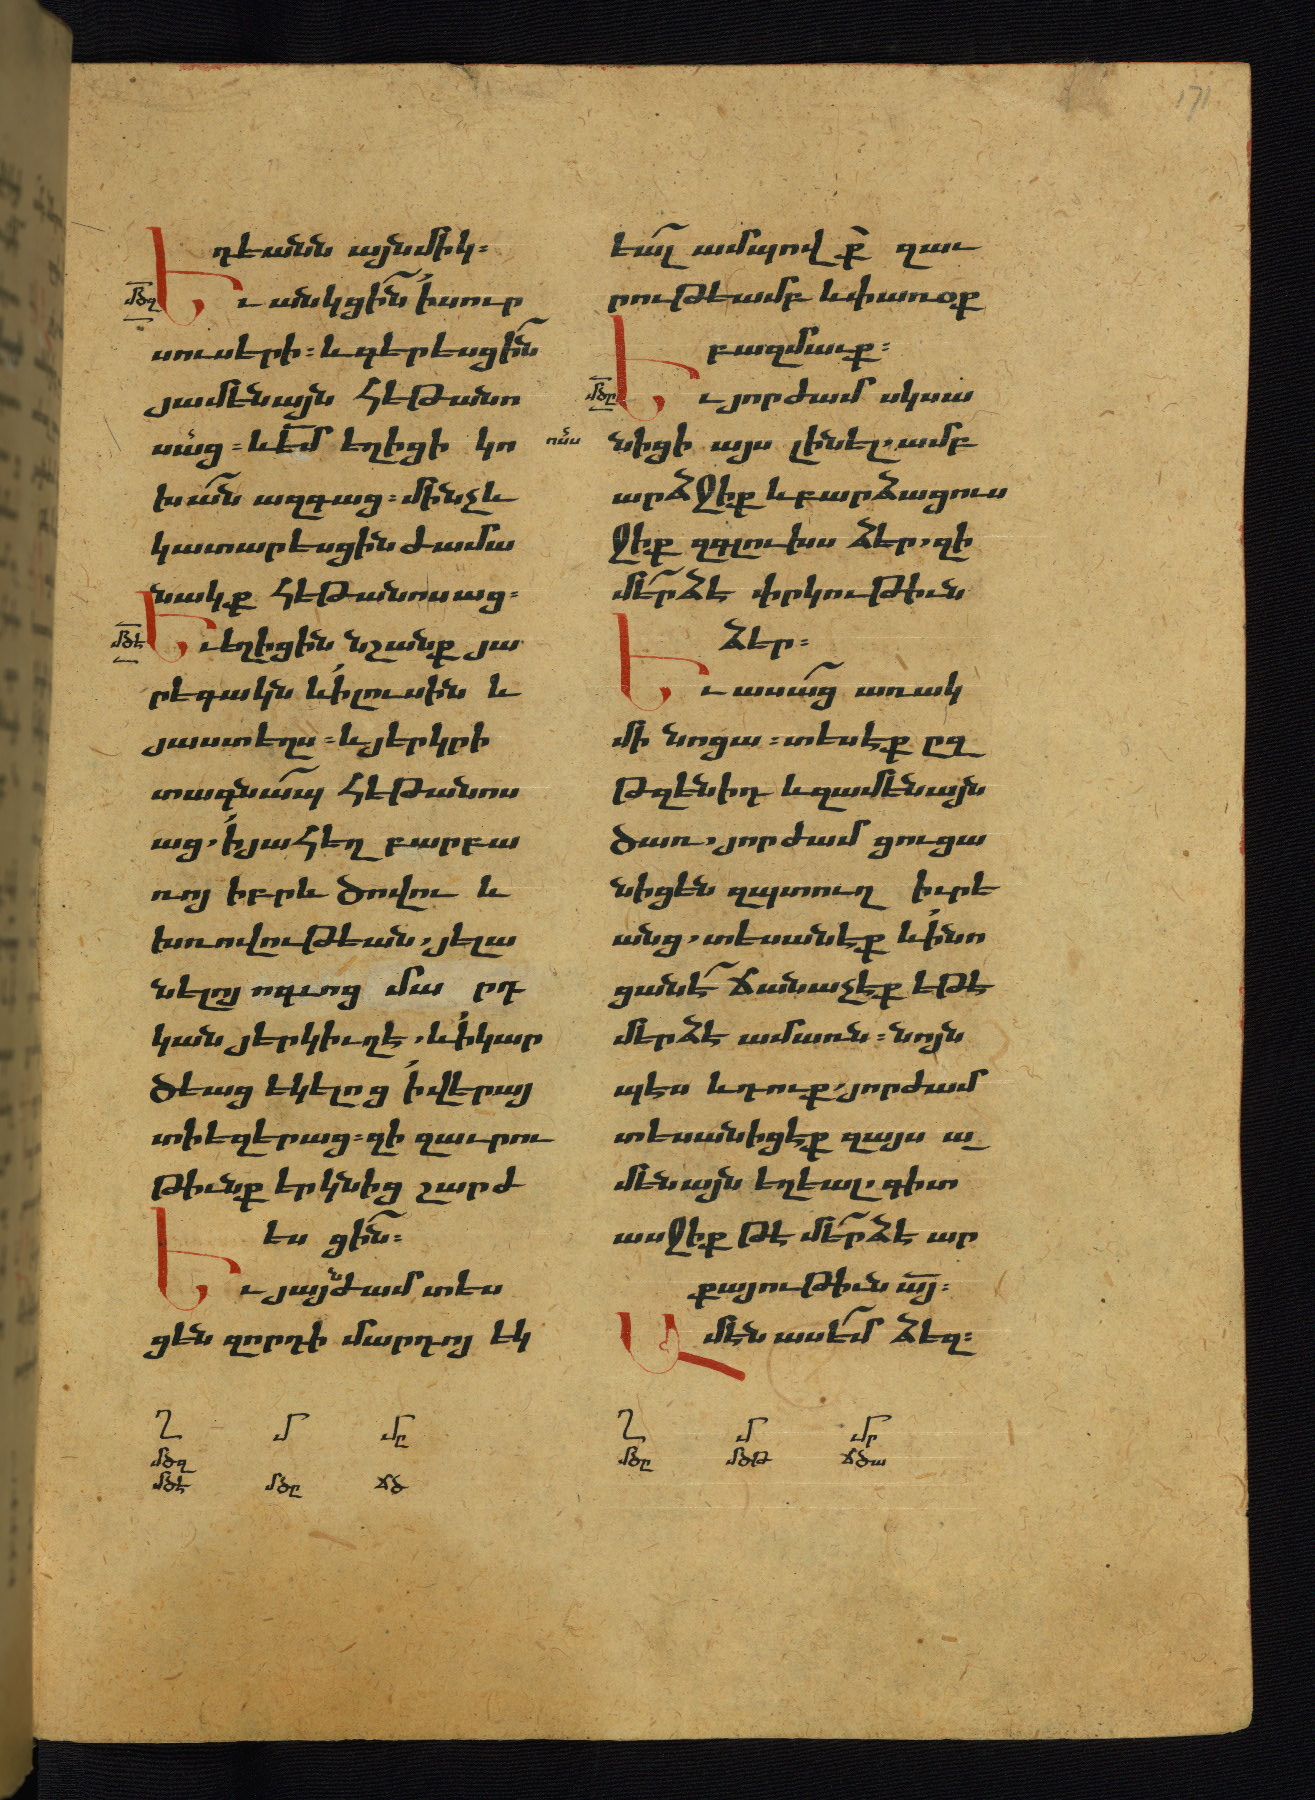 171
դեանն այնմիկ։
մծզ
Եւ անկցին ի սուր
սուսերի։ և գերեսցին
յամենայն հեթանո
սաց։ և եմ եղիցի կո
խան ազգաց։ մինչև
կատարեսցին ժամա
նակք հեթանոսաց։
մծէ
Եւ եղիցին նշանք յա
րեգակն և ի լուսին և
յաստեղս։ և յերկրի
տագնապ հեթանոս
աց, ի յահեղ բարբա
ռոյ իբրև ծովու և
խռովութեան, յելա
նելոյ ոգւոց մարդ
կան յերկիւղէ, և ի կար
ծեաց եկելոց ի վերայ
տիեզերաց։ զի զաւրու
թիւնք երկնից շարժ
եսցին։
Եւ յայնժամ տես
ցեն զորդի մարդոյ եկ
Ղ մ մը
մծզ
մծէ մծը ճծ
եալ ամպով քր զաւ
րութեամբ և փառօք
բազմաւք։
մծը
Եւ յորժամ սկսա
նիցի այս լինել, ամբ
արձջիք և բարձացուս
ջիք զգլուխս ձեր, զի
մերձ է փրկութիւն
ձեր։
Եւ ասաց առակ
մի նոցա։ տեսէք ըզ
թզենիդ և զամենայն
ծառ, յորժամ ցուցա
նիցեն զպտուղ իւրե
անց, տեսանէք և ի նո
ցանէ ճանաչէք եթէ
մերձ է ամառն։ նոյն
պէս և դուք, յորժամ
տեսանիցէք զայս ա
մենայն եղեալ, գիտ
ասջիք թէ մերձ է ար
քայութիւն այ։
Ամէն ասեմ ձեզ։
Ղ մ մր
մծը մծթ ճծա